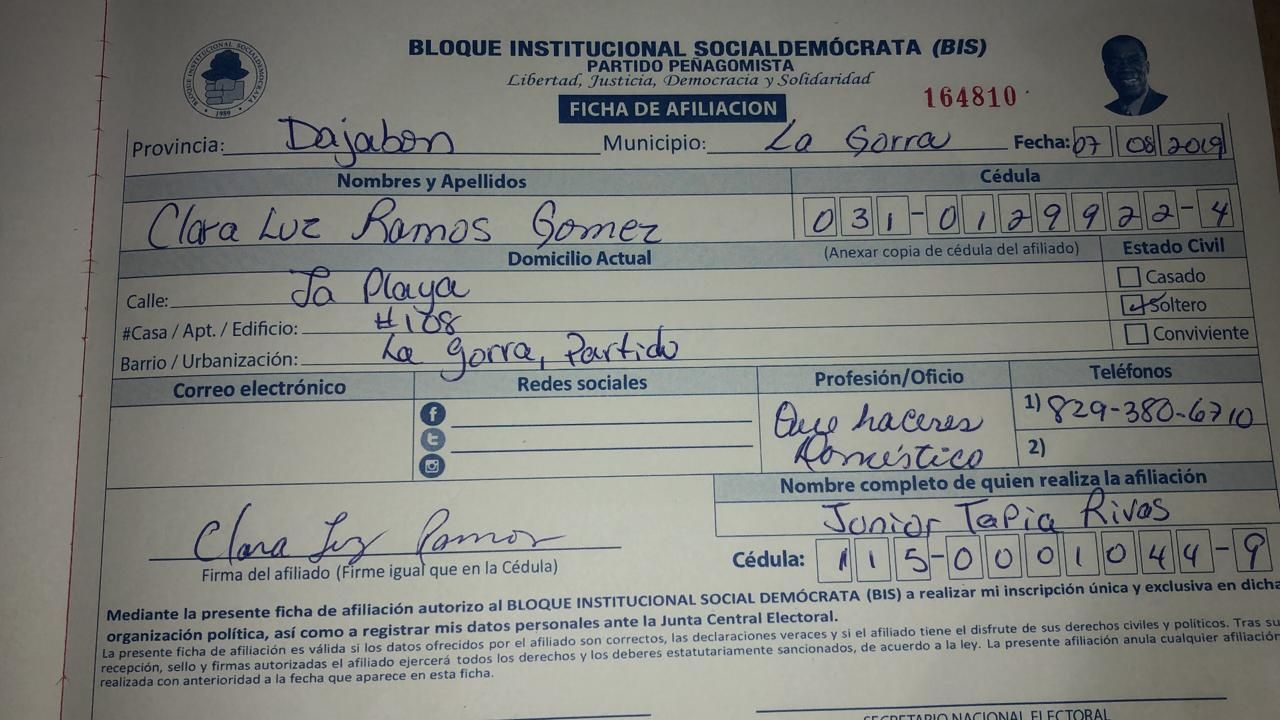 BLOQUE INSTITUCIONAL SOCIALDEMÓCRATA (BIS)
PARTIDO PEÑAGOMISTA
Libertad, Justicia, Democracia y Solidaridad
FICHA DE AFILIACION
164810
BLOQUE INSTITUCIONAL SOCIALDEMOCRATA
1989
Provincia: Dajabon Municipio: La Gorra Fecha: 07 08 2019
Nombres y Apellidos Cédula
Clara Luz Ramos Gomez 031-0129922-4
Domicilio Actual (Anexar copia de cédula del afiliado) Estado Civil
Casado
Calle: La Playa
Soltero
#Casa / Apt. / Edificio: #108
Conviviente
Barrio / Urbanización: La gorra, Partido
Correo electrónico Redes sociales Profesión/Oficio Teléfonos
Que haceres 1) 829-380-6710
Doméstico 2)
Nombre completo de quien realiza la afiliación
Junior Tapia Rivas
Clara Luz Ramos
Cédula: 115-0001044-9
Firma del afiliado (Firme igual que en la Cédula)
Mediante la presente ficha de afiliación autorizo al BLOQUE INSTITUCIONAL SOCIAL DEMÓCRATA (BIS) a realizar mi inscripción única y exclusiva en dicha
organización política, así como a registrar mis datos personales ante la Junta Central Electoral.
La presente ficha de afiliación es válida si los datos ofrecidos por el afiliado son correctos, las declaraciones veraces y si el afiliado tiene el disfrute de sus derechos civiles y políticos. Tras su
recepción, sello y firmas autorizadas el afiliado ejercerá todos los derechos y los deberes estatutariamente sancionados, de acuerdo a la ley. La presente afiliación anula cualquier afiliación
realizada con anterioridad a la fecha que aparece en esta ficha.
SECRETARIO NACIONAL ELECTORAL